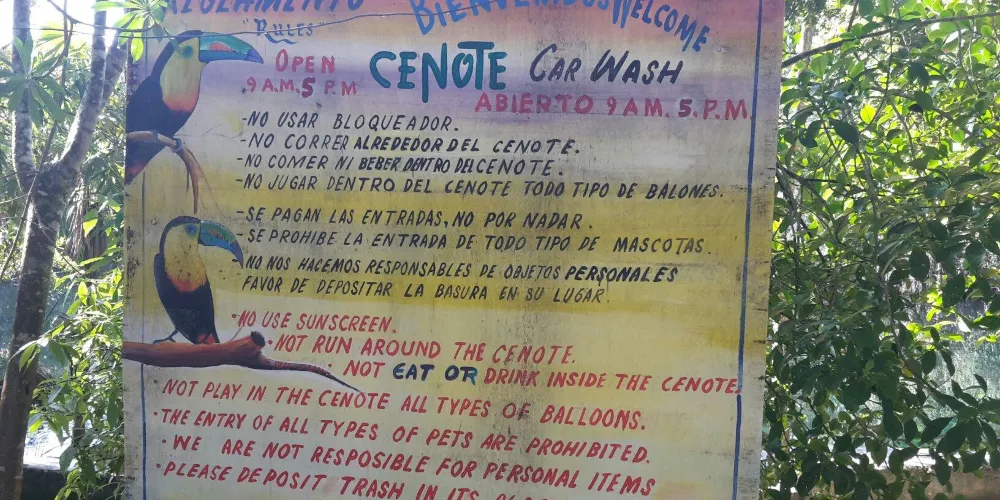 REGLAMENTO
"RULES"
BIENVENIDOS WELCOME
OPEN
9 A.M. 5 P.M
CENOTE CAR WASH
ABIERTO 9 AM. 5. P.M
-NO USAR BLOQUEADOR.
-NO CORRER ALREDEDOR DEL CENOTE.
-NO COMER NI BEBER DENTRO DEL CENOTE.
-NO JUGAR DENTRO DEL CENOTE TODO TIPO DE BALONES.
-SE PAGAN LAS ENTRADAS, NO POR NADAR.
-SE PROHIBE LA ENTRADA DE TODO TIPO DE MASCOTAS.
-NO NOS HACEMOS RESPONSABLES DE OBJETOS PERSONALES
FAVOR DE DEPOSITAR LA BASURA EN SU LUGAR.
•NO USE SUNSCREEN.
•NOT RUN AROUND THE CENOTE.
•NOT EAT OR DRINK INSIDE THE CENOTE.
•NOT PLAY IN THE CENOTE ALL TYPES OF BALLOONS.
•THE ENTRY OF ALL TYPES OF PETS ARE PROHIBITED.
•WE ARE NOT RESPOSIBLE FOR PERSONAL ITEMS
•PLEASE DEPOSIT TRASH IN ITS